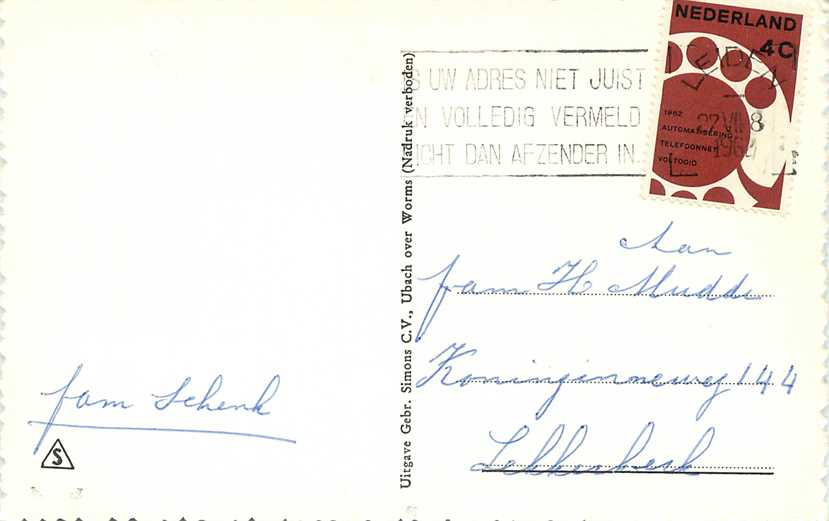 NEDERLAND
4C
LEIDEN
27 VII 8
196
1962
AUTOMATISERING
TELEFOONNET
VOLTOOID
S UW ADRES NIET JUIST
EN VOLLEDIG VERMELD
ICHT DAN AFZENDER IN
Uitgave Gebr. Simons C.V., Ubach over Worms (Nadruk verboden)
Aan
fam H. Mudde
Koninginneweg 144
Lekkerkerk
fam Schenk
S